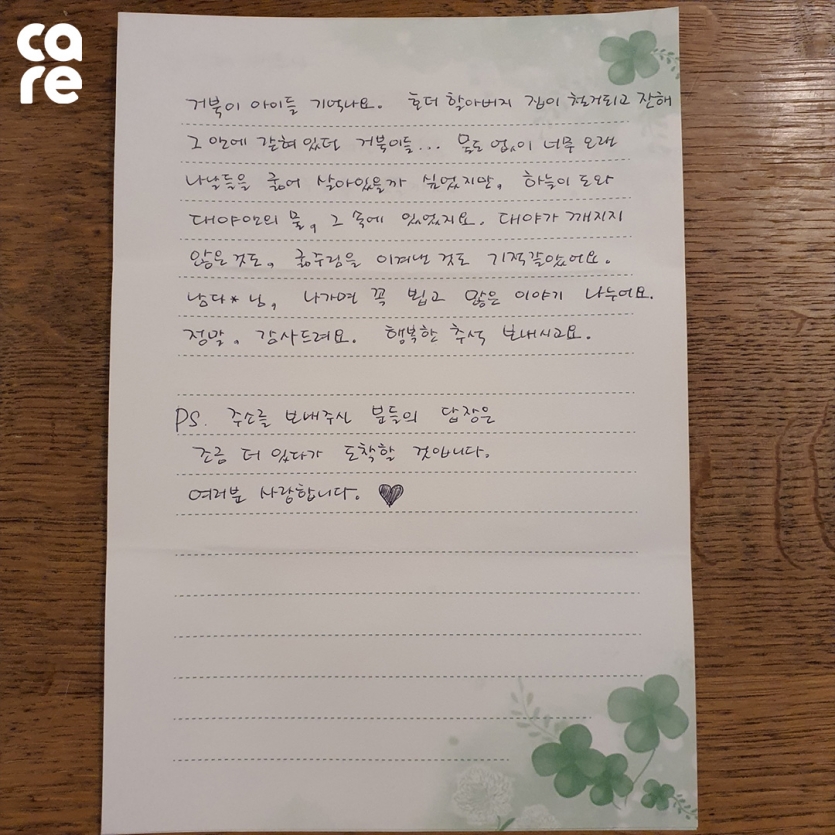 care
거북이 아이들 기억나요. 호더 할아버지 집이 철거되고 잔해
그 안에 갇혀 있던 거북이들... 물도 없이 너무 오랜
나날들을 굶어 살아있을까 싶었지만, 하늘이 도와
대야안의 물, 그 속에 있었지요. 대야가 깨지지
않은 것도, 굶주림을 이겨낸 것도 기적같았어요.
낭다*님, 나가면 꼭 뵙고 많은 이야기 나누어요.
정말, 감사드려요. 행복한 추석 보내시고요.
PS. 주소를 보내주신 분들의 답장은
조금 더 있다가 도착할 것입니다.
여러분 사랑합니다. ♥